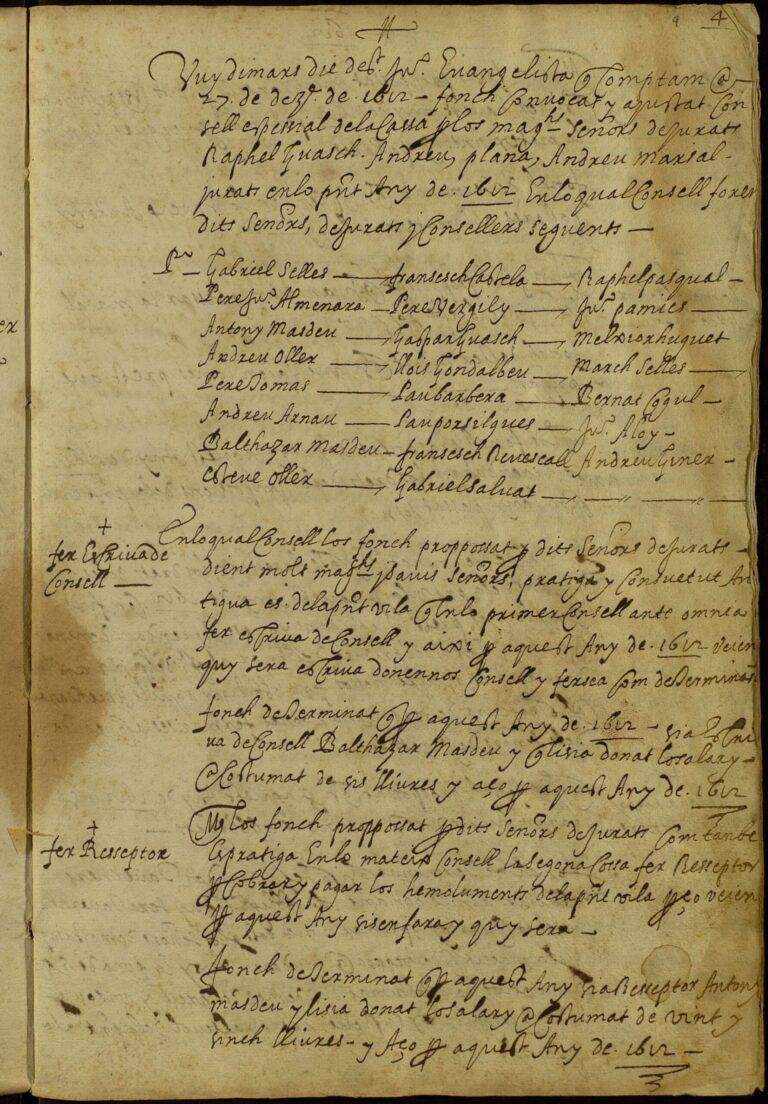 4
Vuy dimars die de st. Jua. Evangelista q Comptam @
27 de dezr. de 1612 - fonch Convocat y ajustat Con
sell espessial de la Cassa p los magchs Señors de Jurats
Raphel Guasch . Andreu, plana, Andreu marsal -
jurats en lo pnt Any de . 1612 En lo qual Consell foren
dits Señors, de Jurats y Consellers seguents —
Pº — Gabriel Selles — fransesch Cabrela — Raphel pasqual —
Pere Jua. Almenara — Pere Vergily — Jua. pamies —
Antony Masdeu — Gaspar Guasch — Melxior huguet
Andreu Oller — Llois Gondalbeu — March Selles —
Pere Domas — Pau barbera — Bernat Cogul —
Andreu Arnau — Pau porsilques — Jua. Aloy —
Balthazar Masdeu — fransesch Revescall Andreu Giner —
Esteve Oller — Gabriel salvat —
En lo qual Consell los fonch proppossat p dits Señors de Jurats —
fer Escriva de
Consell —
dient molt magchs y savis Señors, pratiga y Consuetut An
tigua es . de la pnt vila q En lo primer Consell ante omnia
fer escriva de Consell y aixi p aquest Any de . 1612 veien
quy sera escriva donennos Consell y fersea Com determinaran
fonch determinat q p aquest Any de . 1612 — sia Escri
va de Consell Balthazar Masdeu y q li sia donat lo salary —
@Costumat de sis lliures y aço p aquest Any de . 1612
fer Resseptor
Mes los fonch proppossat p dits Señors de Jurats Com tanbe
Es pratiga En lo mateix Consell la segona Cossa fer Resseptor
p Cobrar y pagar los hemoluments de la pnt vila p ço veien
p aquest Any si sen fara y quy sera —
fonch determinat q p aquest Any sia Resseptor Antony
masdeu y li sia donat lo salary @Costumat de vint y
sinch lliures — y Aço p aquest Any de . 1612 —